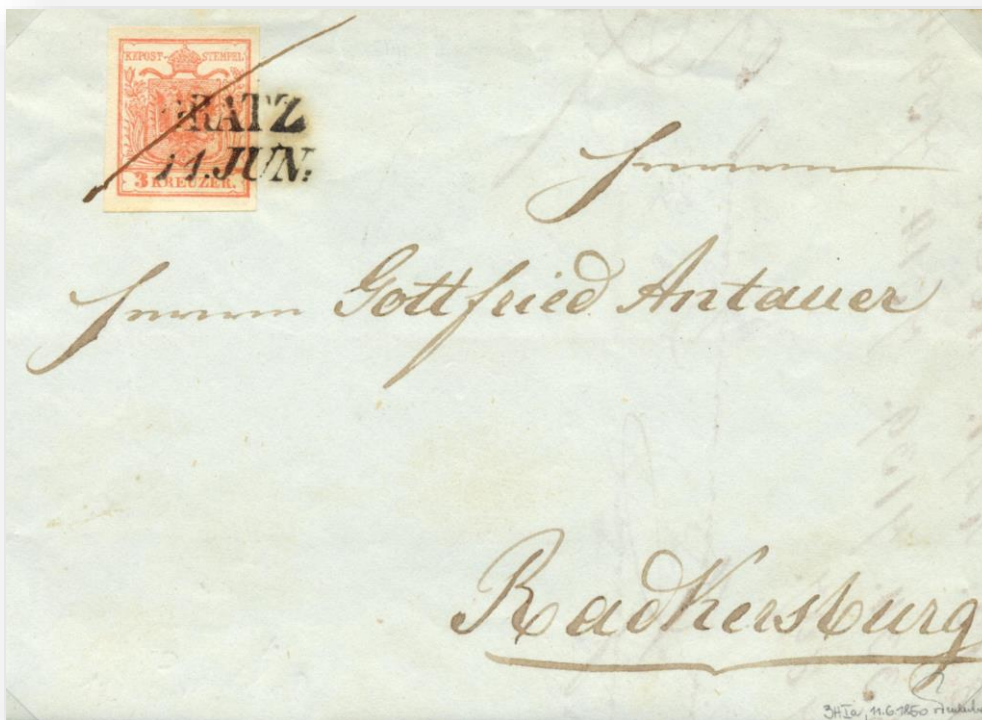 KKPOST-STEMPEL
3 KREUZER.
GRATZ
11. JUN:
Herrn
Herrn Gottfried Antauer
Radkersburg
3HIa, 11.6.1850